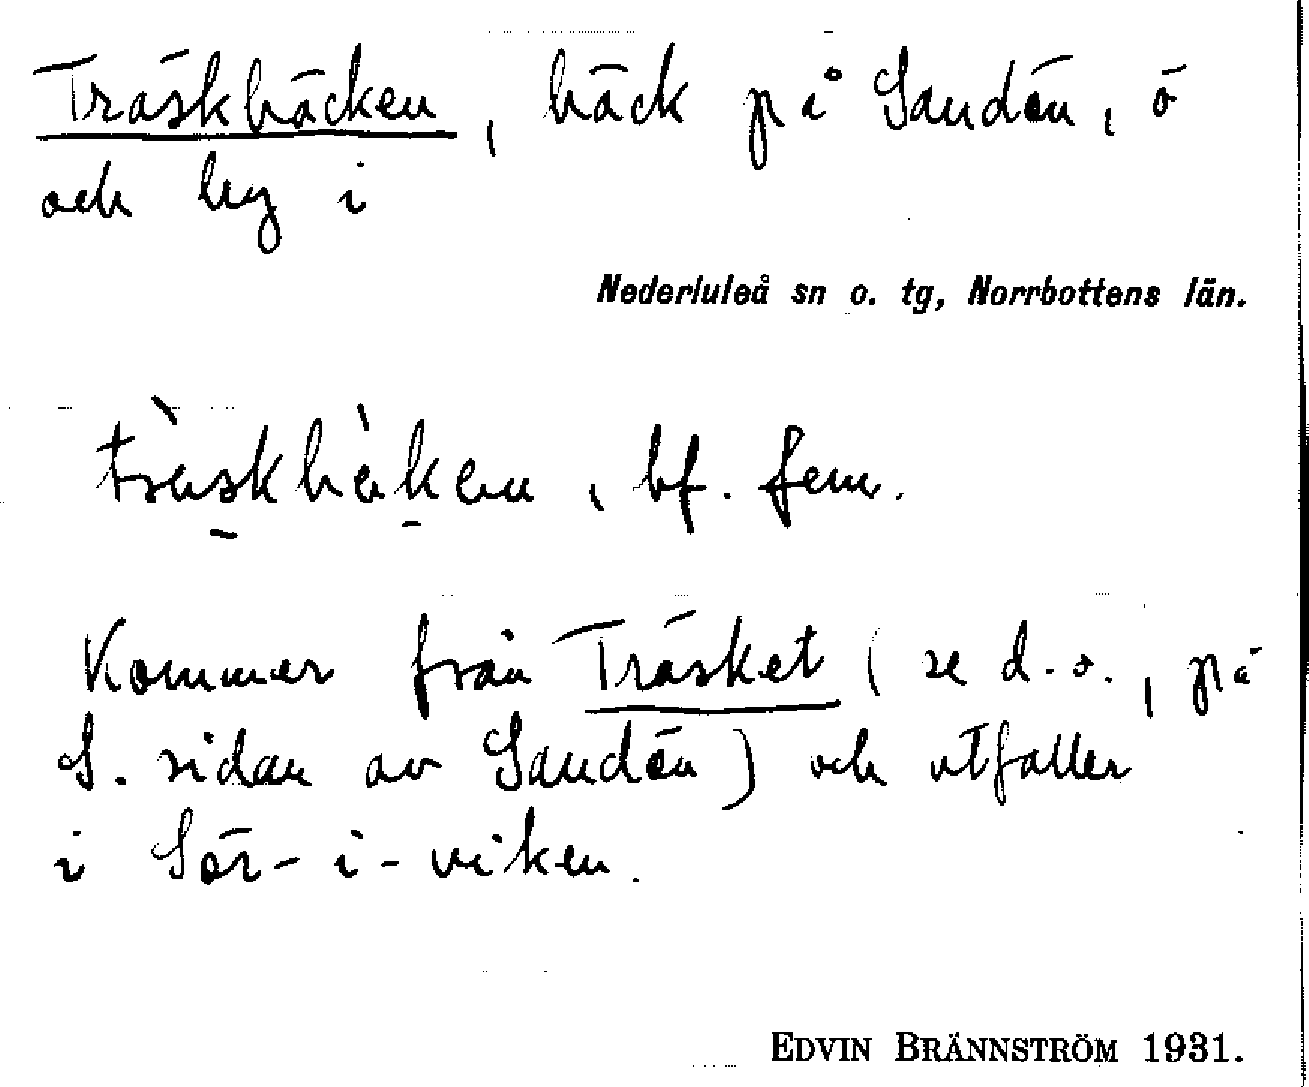 Träskbäcken, bäck på Sandön, ö
och by i
Nederluleå sn o. tg, Norrbottens län.
bf. fem.
Kommer från Träsket (se d.o., på
S. sidan av Sandön) och utfaller
i Sör-i-viken.
EDVIN BRÄNNSTRÖM 1931.